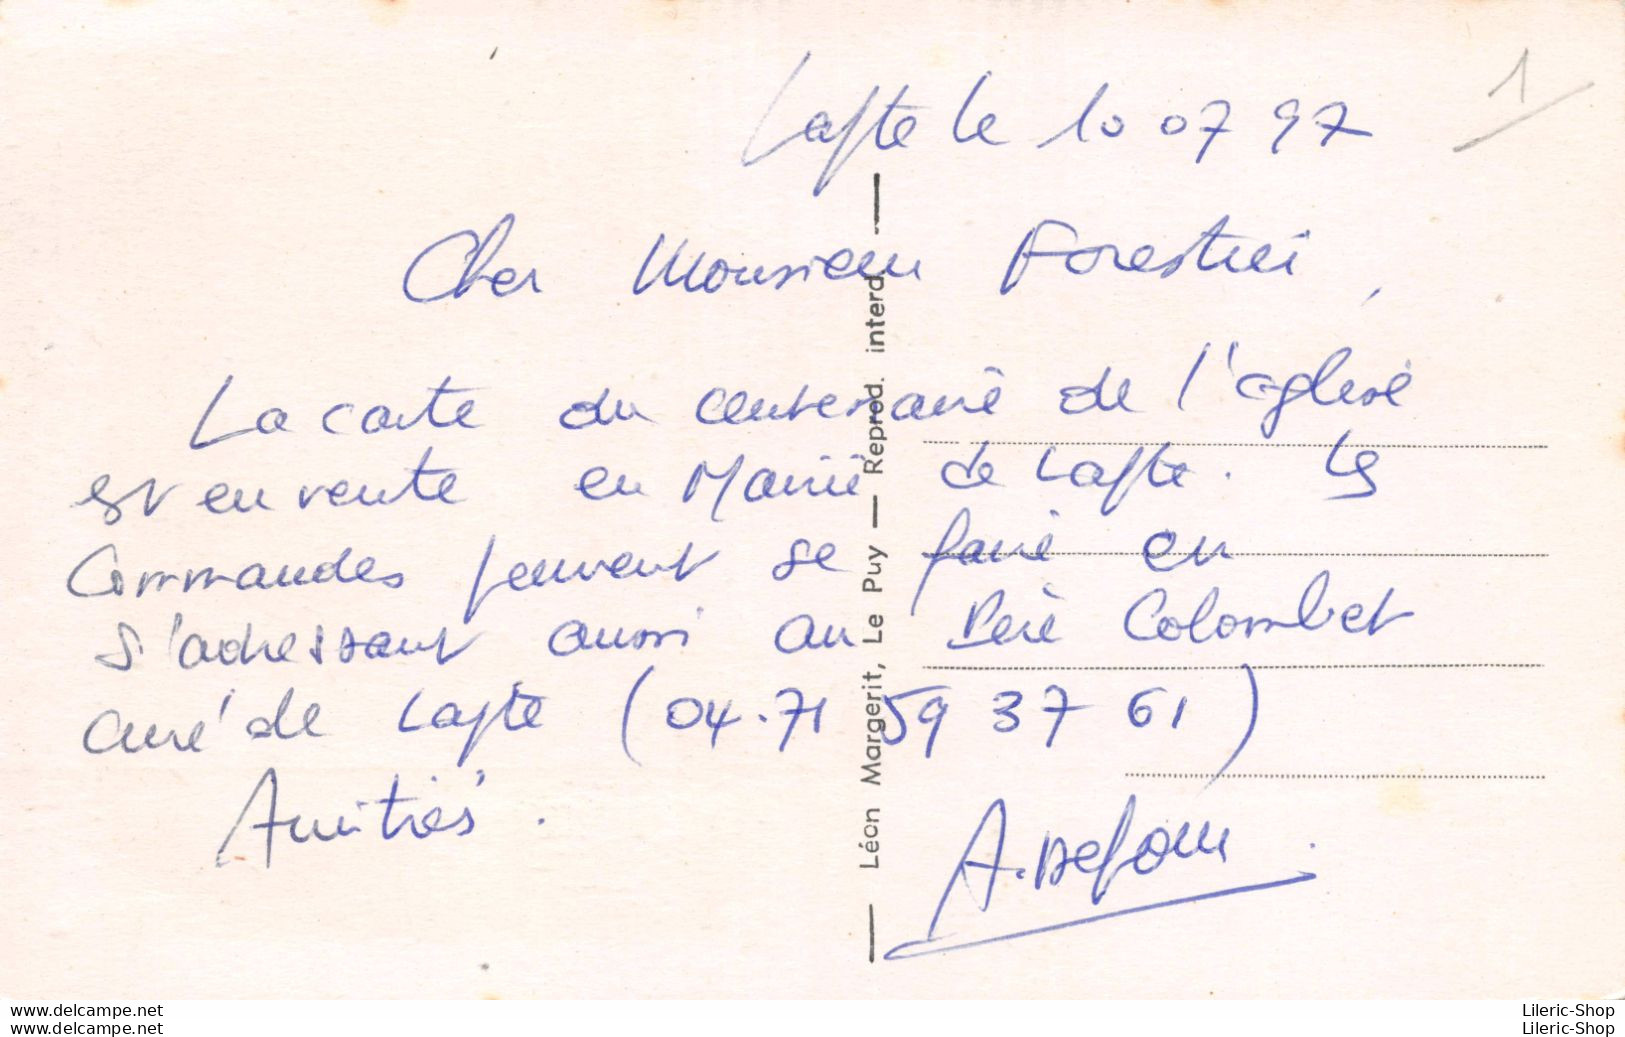 1
Lapte le 10 07 97
Cher Monsieur Forestier,
La carte du centenaire de l'église
est en vente en Mairie de Lapte. Les
Commandes peuvent se faire en
s'adressant aussi au Père Colombet
curé de Lapte (04.71 59 37 61)
Amitiés.
A.
Léon Margerit, Le Puy — Reprod. interd.
www.delcampe.net
www.delcampe.net
Lileric-Shop
Lileric-Shop